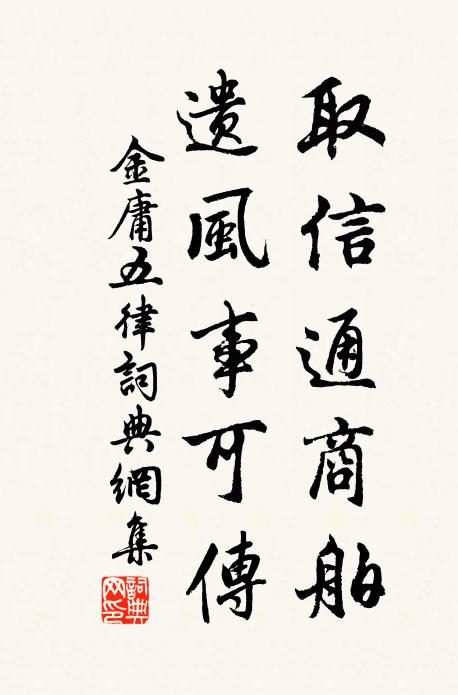 取信通商舶
遺風事可傳
金庸五律詞典網集
詞典網印